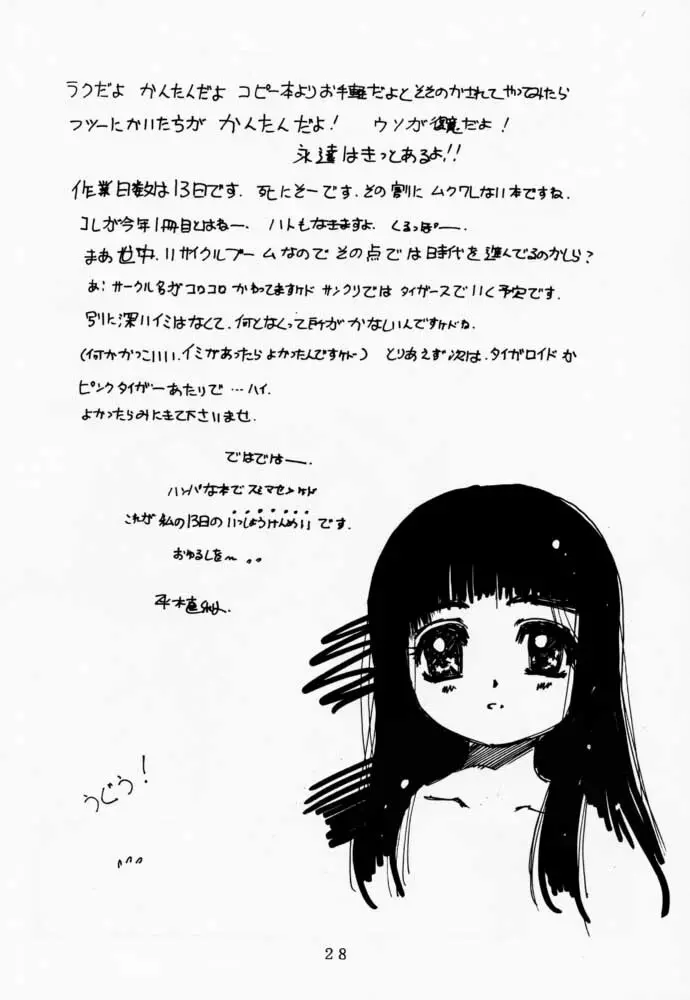 ラクだよ かんたんだよ コピー本よりお手軽だよとそそのかされてやってみたら
フツーにかいたちが かんたんだよ! ウソが 覚だよ!
永遠はきっとあるよ!!
作業日数は13日です. 死にそーです. その割に ムクワレない本ですね.
コレが今年1冊目とはねー. ハトもなきますよ. くるっぽー.
まあ 世中. リサイクルブームなので その点では時代を進んでるのかしら?
あ! サークル名がコロコロ かわってますけド サンクリでは タイガースでいく予定です.
別に深いイミはなくて. 何となくって所がかなしいんですけどね.
(何かかっこいい. イミがあったら よかったんですけド) とりあえず次は. タイガロイド か
ピンクタイガー あたりで …ハイ.
よかったらみにきて下さいませ.
ではではー.
ハンパな本でスミマセンけど
これが 私の13日の いっしょうけんめい です.
おゆるしを〜
うぐぅ!
28